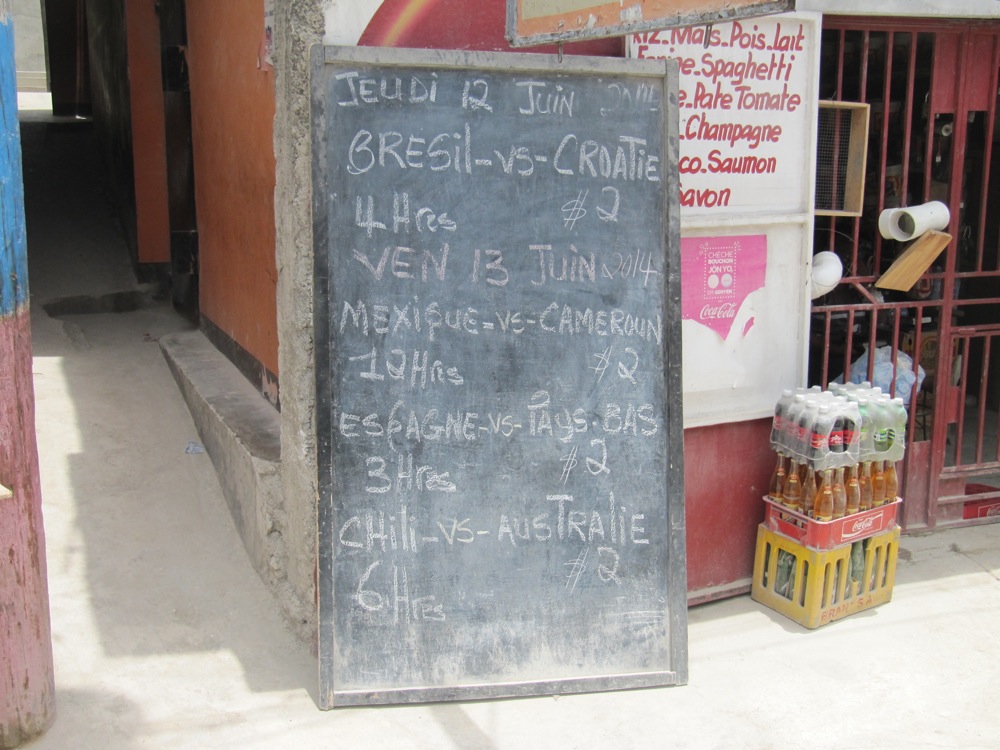 JEUDI 12 JUIN 2014
BRESIL-VS-CROATIE
4Hres $2
VEN 13 JUIN 2014
MEXIQUE-VS-CAMEROUN
12Hres $2
ESPAGNE-VS-PAYS-BAS
3Hres $2
CHILI-VS-AUSTRALIE
6Hres $2
RIZ_Mais_Pois_lait
Spaghetti
Pate Tomate
Champagne
co_Saumon
Savon
CHÈCHE
BOUCHON
JÒN YO,
GENYEN
Coca-Cola
Coca-Cola
BRANA S.A